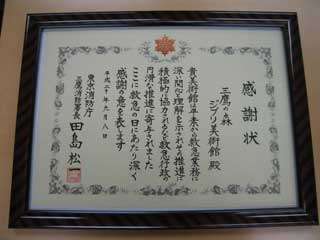 感謝状
三鷹の森
ジブリ美術館 殿
貴美術館は平素から救急業務に
深い関心と理解を示されその推進に
積極的に協力されるなど救急行政の
円滑な推進に寄与されました
ここに救急の日にあたり深く
感謝の意を表します
平成二十年九月八日
東京消防庁
三鷹消防署長 田島松一